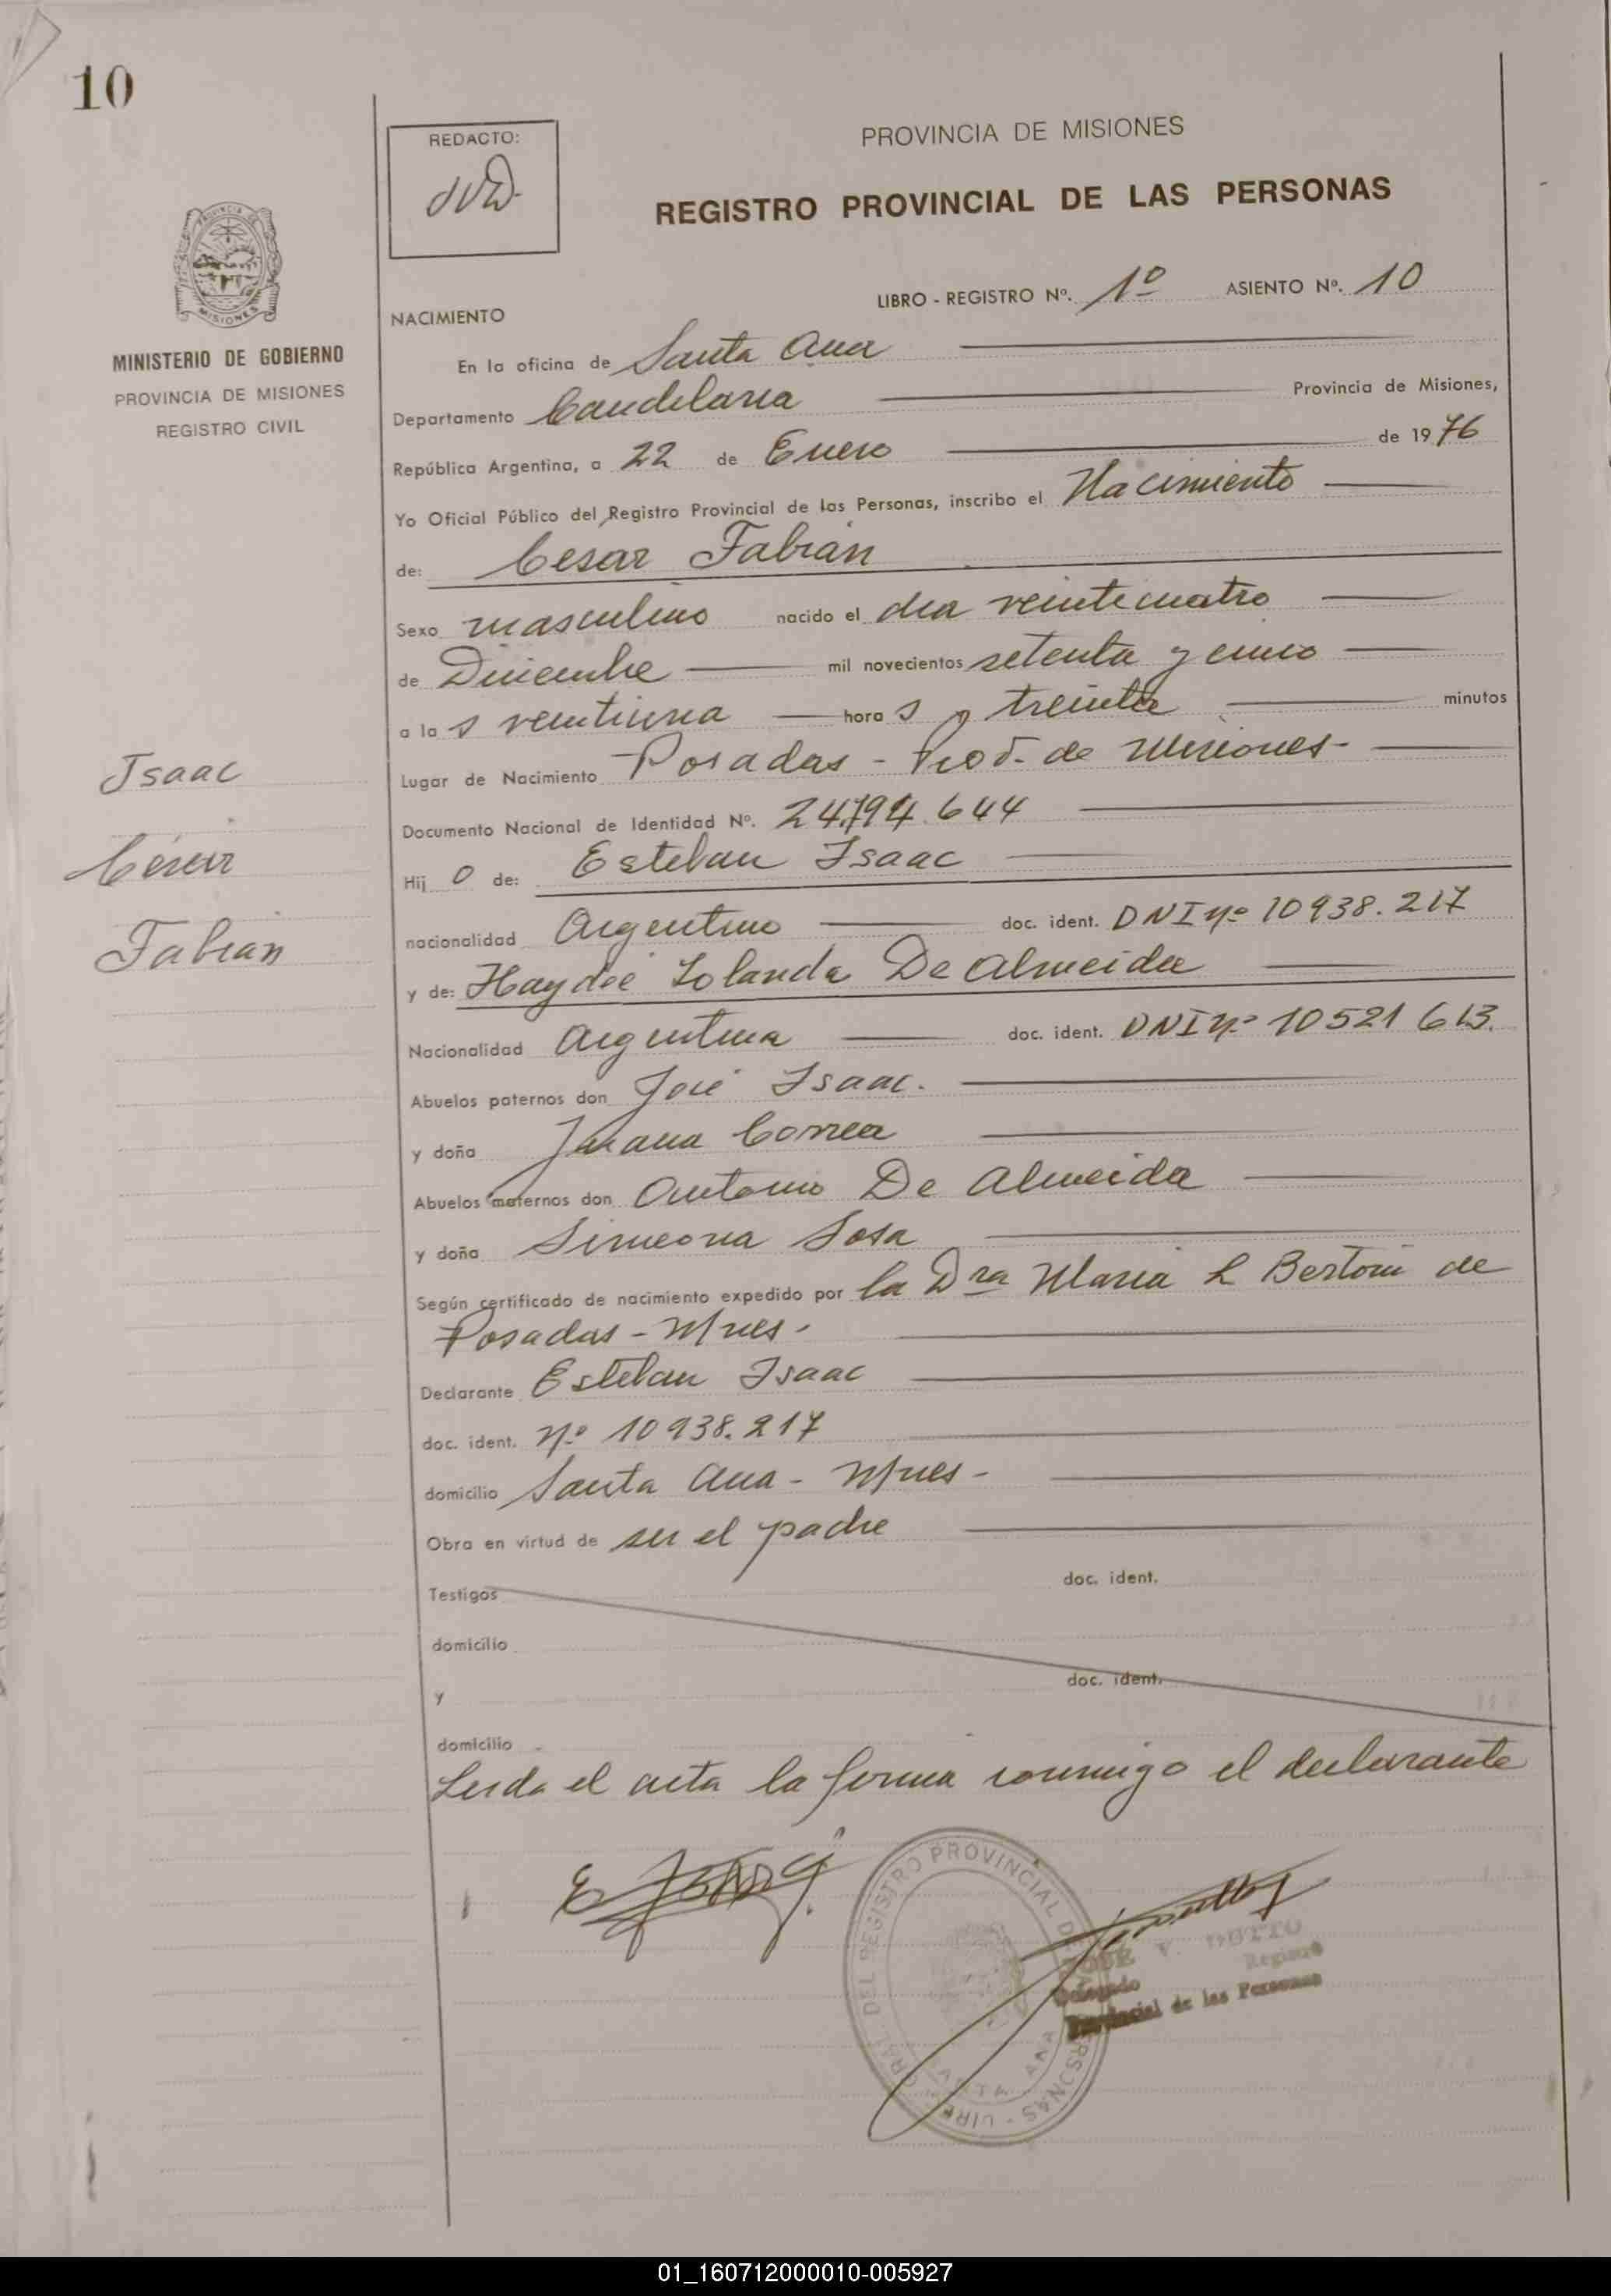 10
REDACTO:
PROVINCIA DE MISIONES
REGISTRO PROVINCIAL DE LAS PERSONAS
MISIONES
MINISTERIO DE GOBIERNO
PROVINCIA DE MISIONES
REGISTRO CIVIL
LIBRO - REGISTRO Nº. 1º ASIENTO Nº. 10
NACIMIENTO
En la oficina de Santa Ana
Departamento Candelaria Provincia de Misiones,
República Argentina, a 22 de Enero de 1976
Yo Oficial Público del Registro Provincial de las Personas, inscribo el Nacimiento
de: Cesar Fabián
Sexo masculino nacido el dia veinticuatro
de Diciembre mil novecientos setenta y cinco
a la s veintiuna hora s y treinta minutos
Lugar de Nacimiento Posadas - Prov. de Misiones -
Documento Nacional de Identidad Nº. 24.794.644
Hij o de: Esteban Isaac
nacionalidad Argentino doc. ident. DNI Nº 10938.217
y de: Haydée Iolanda De Almeida
Nacionalidad Argentina doc. ident. DNI Nº 10521613.
Abuelos paternos don José Isaac.
y doña Juana Correa
Abuelos maternos don Antonio De Almeida
y doña Simeona Sosa
Según certificado de nacimiento expedido por la Dra Maria L Bertoni de
Posadas - Mnes.
Declarante Esteban Isaac
doc. ident. Nº 10938.217
domicilio Santa Ana - Mnes -
Obra en virtud de ser el padre
Testigos doc. ident.
domicilio
y doc. ident.
domicilio
Leida el acta la firma conmigo el declarante
Isaac
César
Fabian
DEL REGISTRO PROVINCIAL DE LAS PERSONAS
SANTA ANA
JOSE V.
Delegado Registro
Provincial de las Personas
01_160712000010-005927